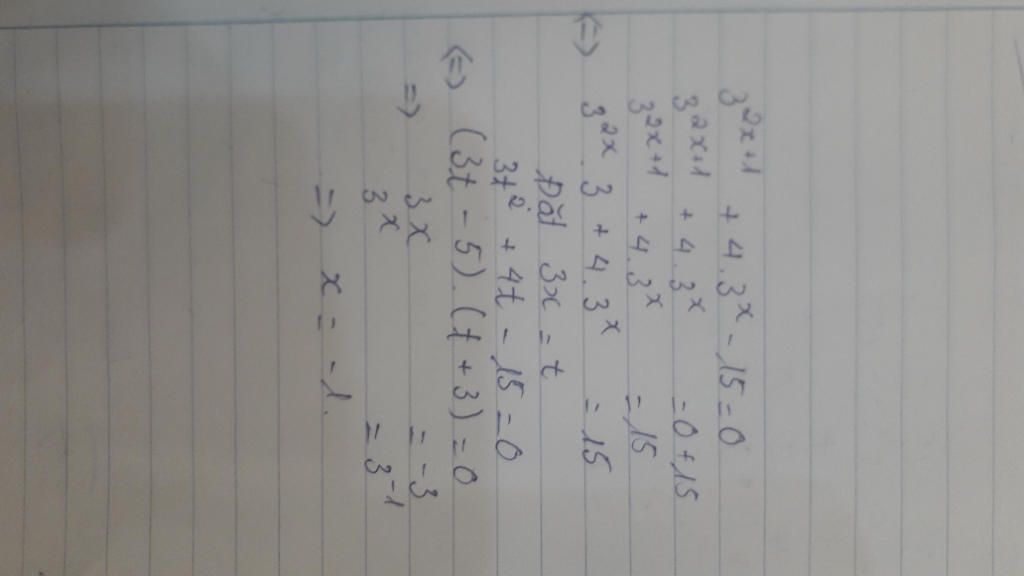 3^{2x+1} + 4.3^x - 15 = 0
3^{2x+1} + 4.3^x = 0 + 15
3^{2x+1} + 4.3^x = 15
<=> 3^{2x}.3 + 4.3^x = 15
Đặt 3x = t
3t^2 + 4t - 15 = 0
<=> (3t - 5).(t + 3) = 0
=> 3x = -3
3^x = 3^{-1}
=> x = -1.